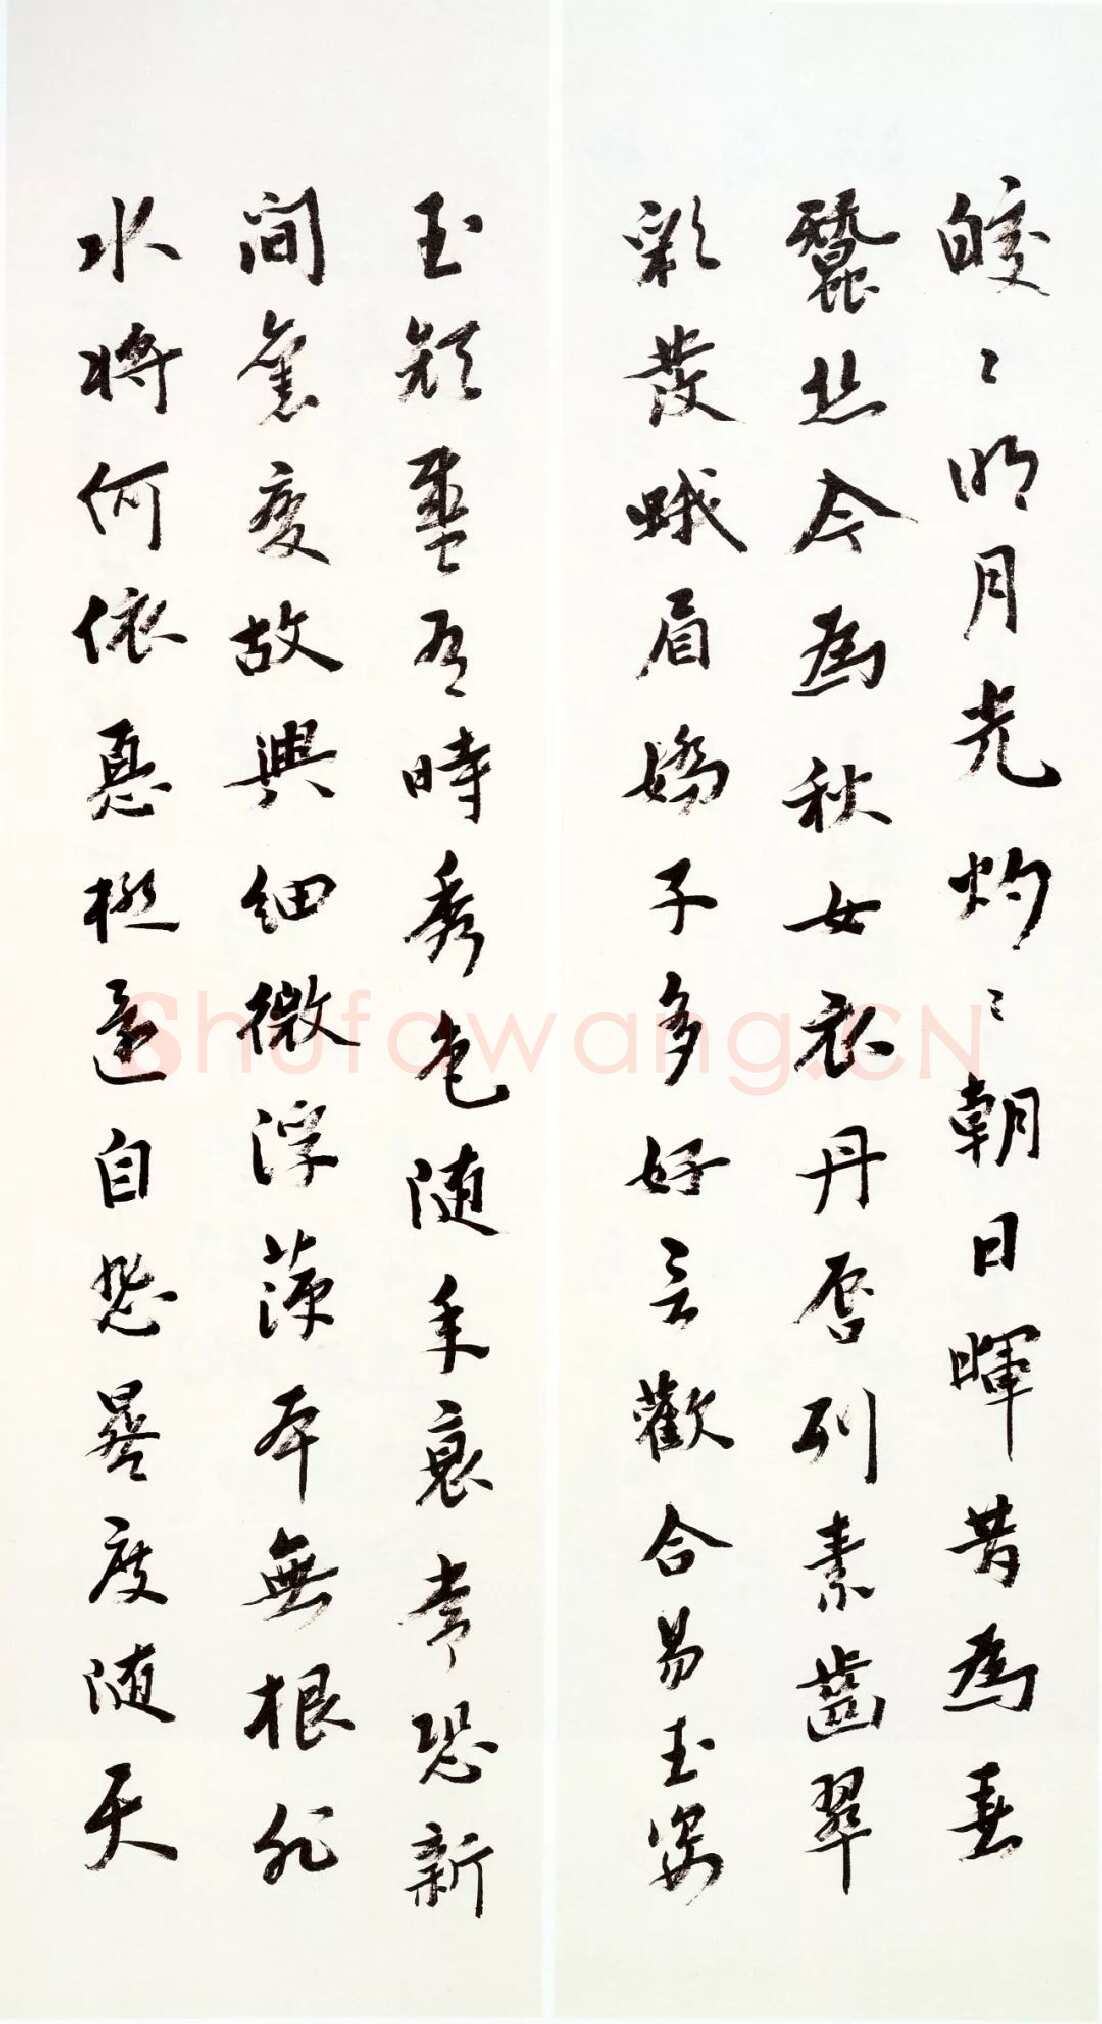 皎〻明月光灼〻朝日暉昔為春
蠶丝今為秋女衣丹唇列素齒翠
彩發蛾眉嬌子多好言歡合易玉姿
玉颜盛有時秀色随年衰常恐新
間舊變故興細微浮萍本無根非
水將何依憂極還自悲晷度随天
Shufawang.CN